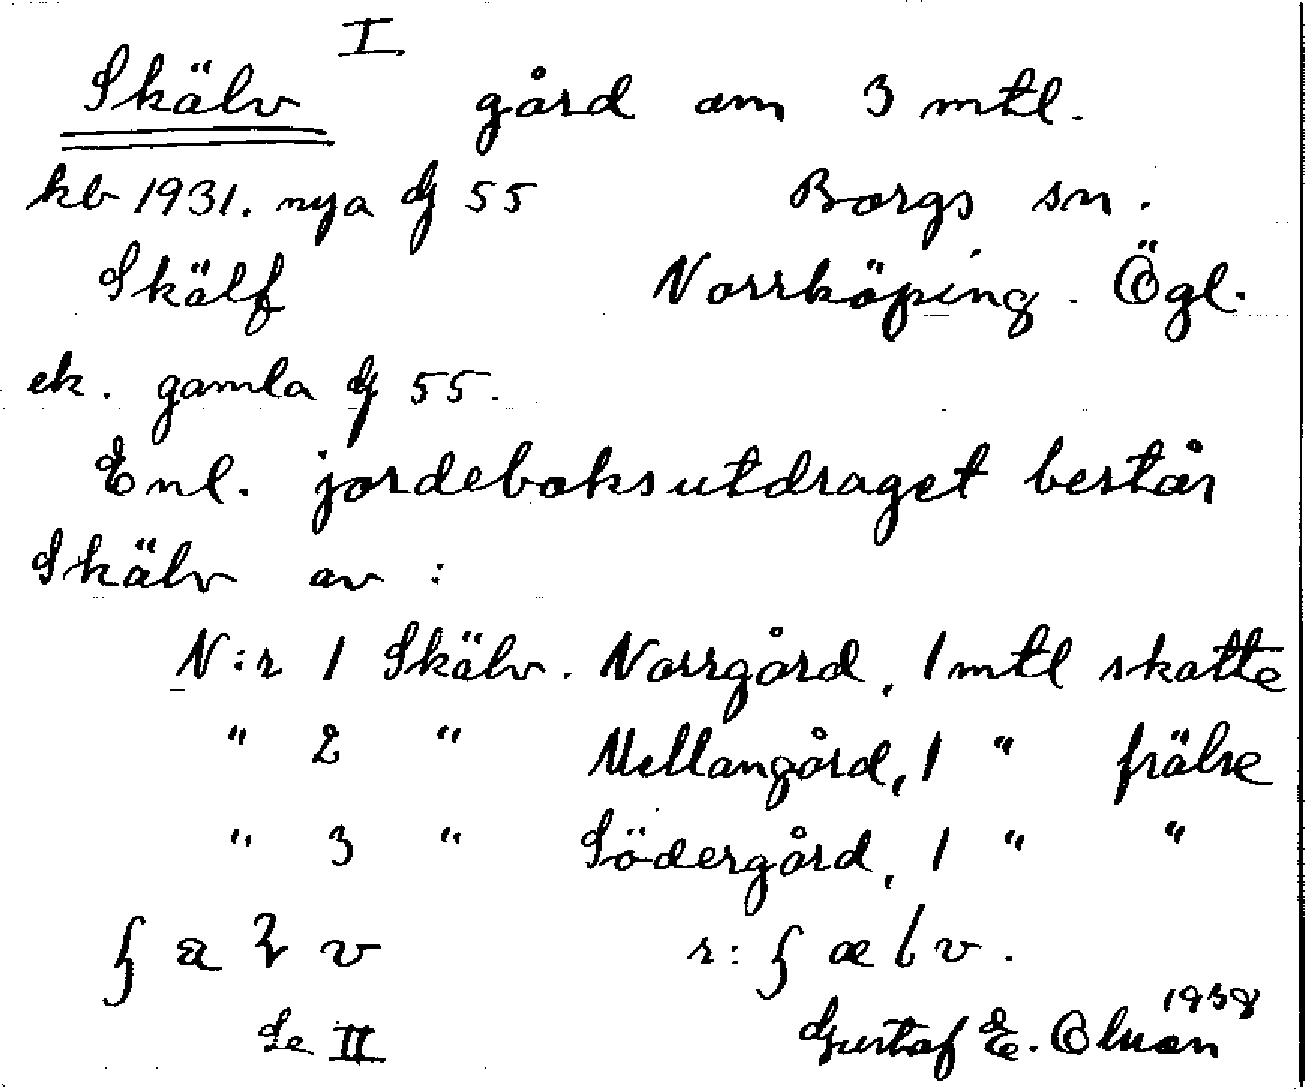 I
Skälv gård om 3 mtl.
kb 1931. nya 55 Borgs sn.
Skälf Norrköping. Ögl.
ek. gamla 55.
Enl. jordeboksutdraget består
Skälv av :
N:r 1 Skälv. Norrgård, 1 mtl skatte
" 2 " Mellangård, 1 " frälse
" 3 " Södergård, 1 " "
v r: v.
1938
Se II Gustaf E. Olson